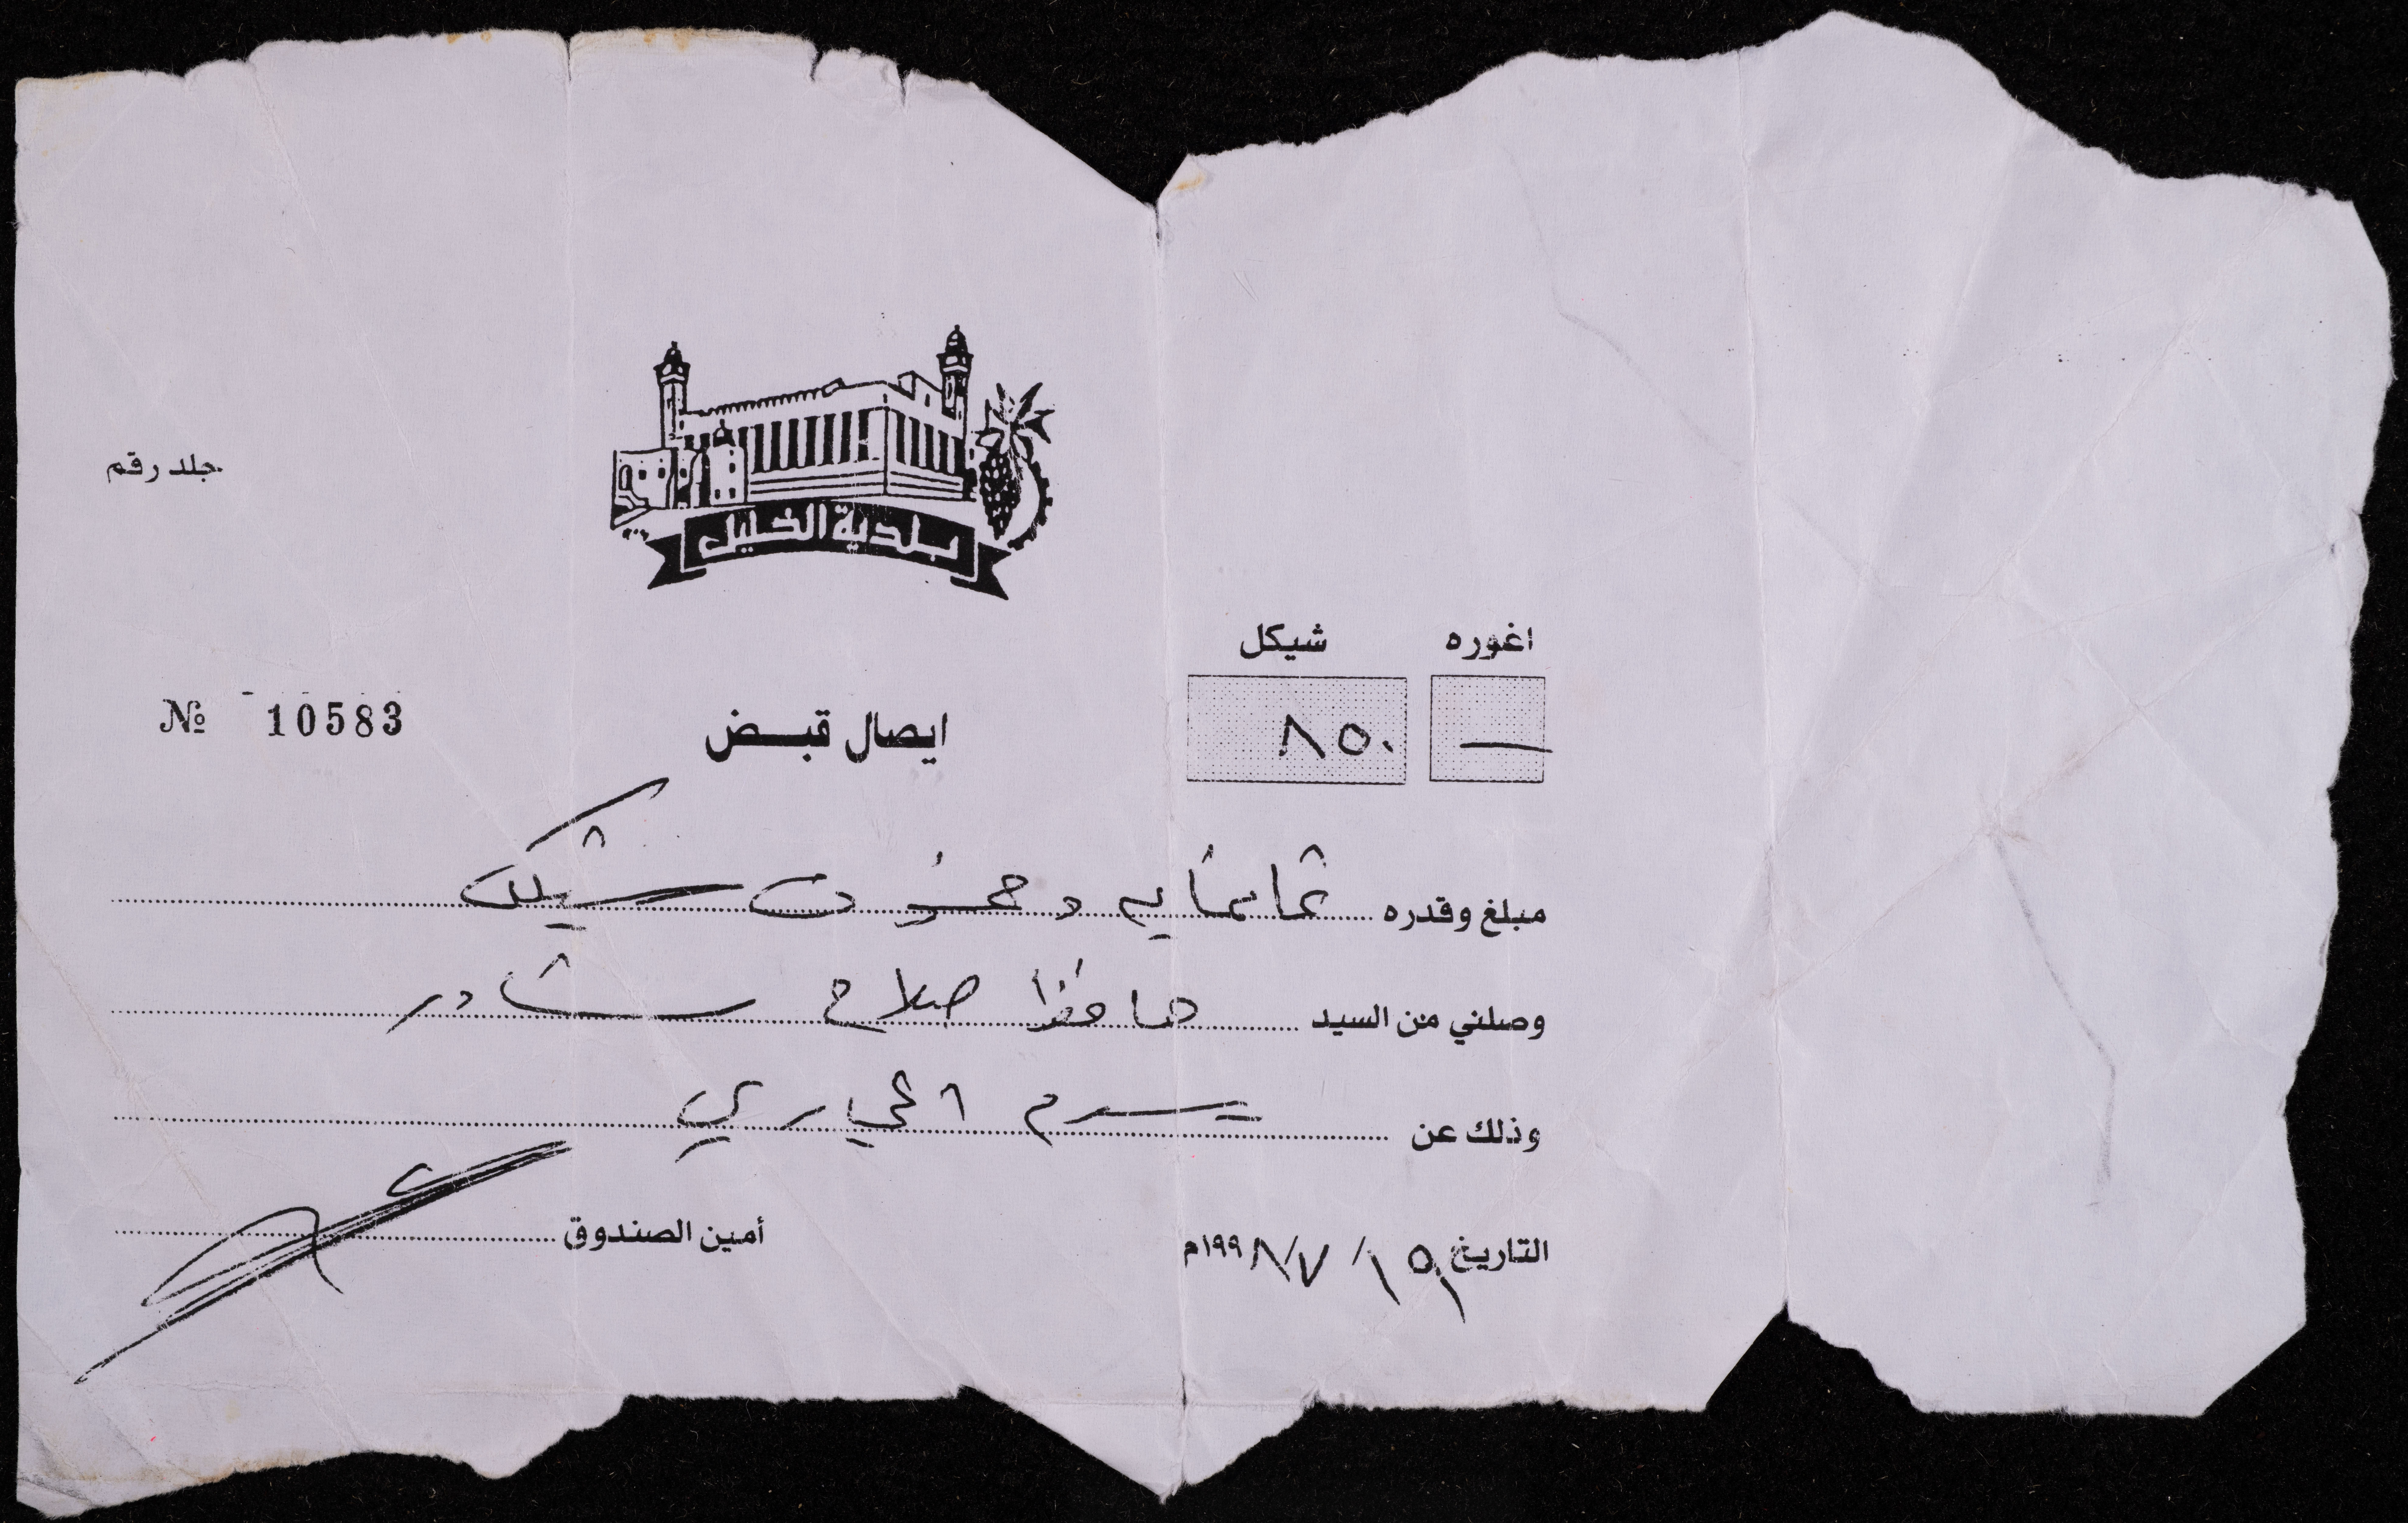 جلد رقم
بلدية الخليل
اغوره شيكل
— ٨٥٠
ايصال قبض
№ 10583
مبلغ وقدره ثمانماية وخمسون شيكل
وصلني من السيد حافظ صلاح شادر
وذلك عن رسم المجاري
التاريخ ١٥ / ٧ / ١٩٩٨م
أمين الصندوق